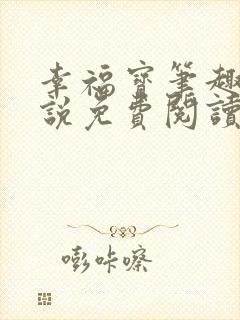 幸福寶筆趣
說免費閱讀
嘭咔嚓